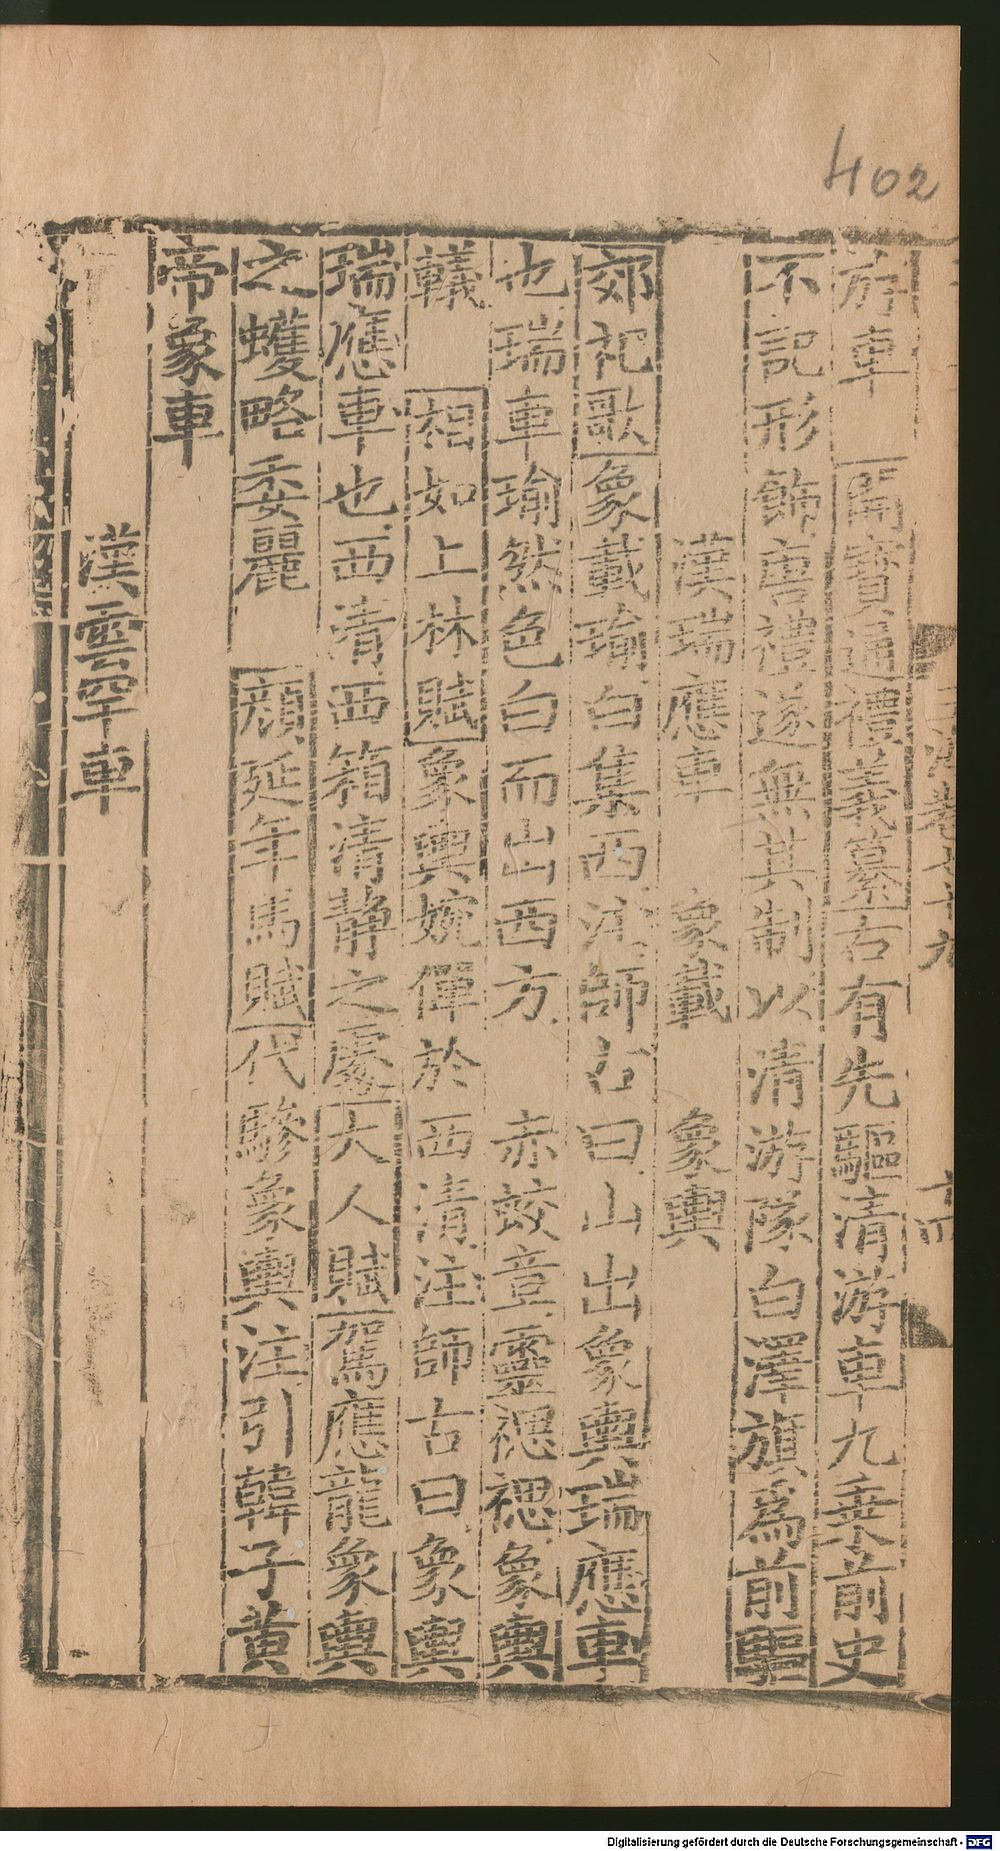 402
斿車 開寶通禮義纂古有先驅清游車九乗前史
不記形飾唐禮遂無其制以清游隊白澤旗爲前驅
漢瑞應車 象載 象輿
郊祀歌象載瑜白集西注師古曰山出象輿瑞應車
也瑞車瑜然色白而出西方 赤蛟章靈禗禗象輿
轙 相如上林賦象輿婉僤於西清注師古曰象輿
瑞應車也西清西箱清靜之處大人賦駕應龍象輿
之蠖略委麗 顔延年馬賦代驂象輿注引韓子黃
帝象車
漢雲罕車
Digitalisierung gefördert durch die Deutsche Forschungsgemeinschaft - DFG